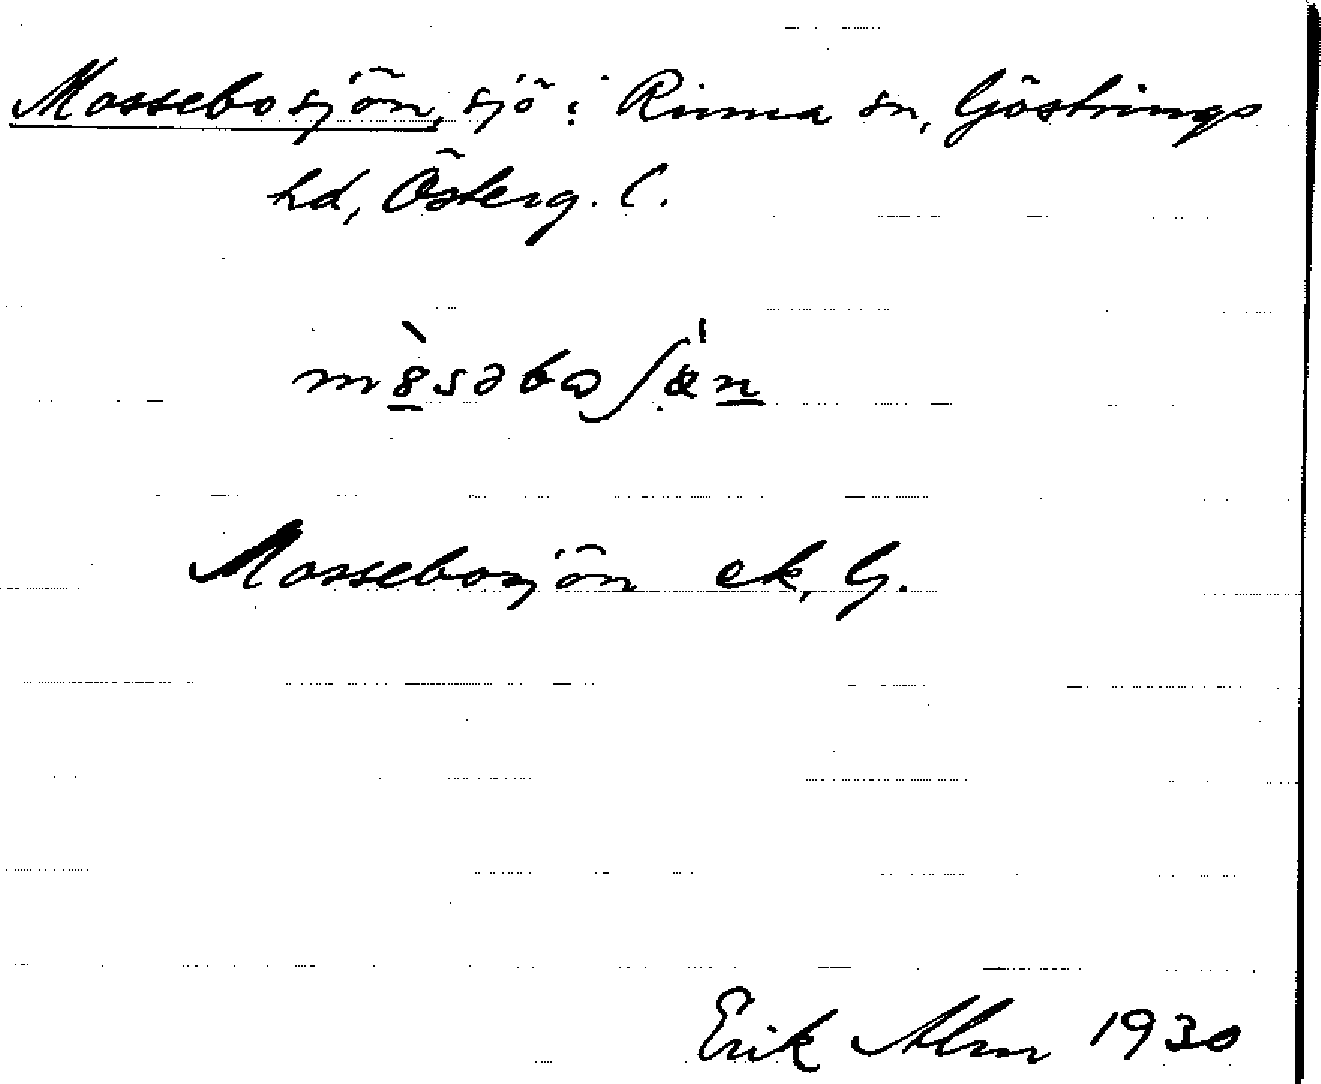 Mossebosjön, sjö i Rinna sn, Göstrings
hd, Österg. l.
m8̀səbωʃä'n
Mossebosjön ek, G.
Erik Alm 1930